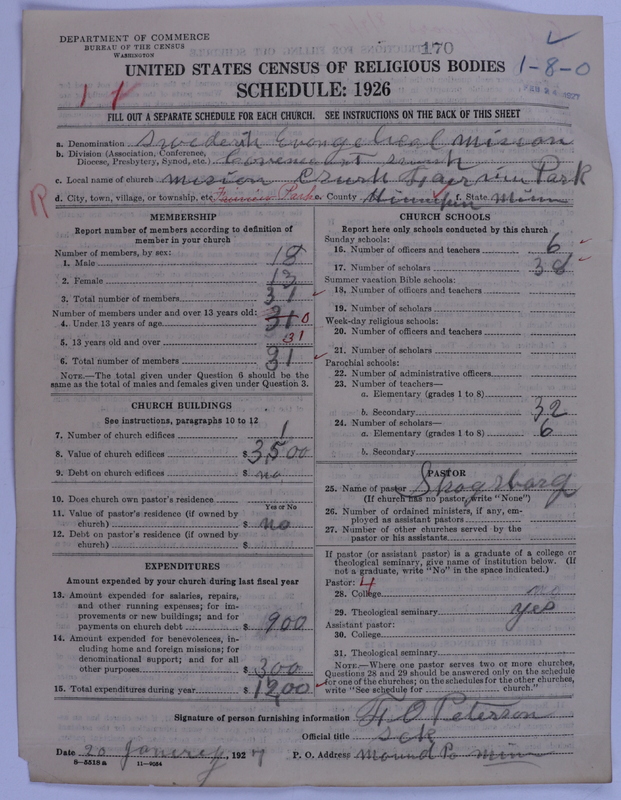 DEPARTMENT OF COMMERCE
BUREAU OF THE CENSUS
WASHINGTON
170
UNITED STATES CENSUS OF RELIGIOUS BODIES
1-8-0
SCHEDULE: 1926
FILL OUT A SEPARATE SCHEDULE FOR EACH CHURCH. SEE INSTRUCTIONS ON THE BACK OF THIS SHEET
a. Denomination Swedish Evangelical Mission
b. Division (Association, Conference,
Diocese, Presbytery, Synod, etc.) Covenant
c. Local name of church Mission Park
d. City, town, village, or township, etc. Park e. County f. State Minn
MEMBERSHIP
Report number of members according to definition of
member in your church
Number of members, by sex:
1. Male 18
2. Female 13
3. Total number of members 31
Number of members under and over 13 years old:
4. Under 13 years of age 0
5. 13 years old and over 31
6. Total number of members 31
NOTE.—The total given under Question 6 should be the
same as the total of males and females given under Question 3.
CHURCH BUILDINGS
See instructions, paragraphs 10 to 12
7. Number of church edifices 1
8. Value of church edifices $ 3500
9. Debt on church edifices $ no
10. Does church own pastor's residence
Yes or No
11. Value of pastor's residence (if owned by
church) $ no
12. Debt on pastor's residence (if owned by
church) $
EXPENDITURES
Amount expended by your church during last fiscal year
13. Amount expended for salaries, repairs,
and other running expenses; for im-
provements or new buildings; and for
payments on church debt $ 900
14. Amount expended for benevolences, in-
cluding home and foreign missions; for
denominational support; and for all
other purposes $ 300
15. Total expenditures during year $ 1200
CHURCH SCHOOLS
Report here only schools conducted by this church
Sunday schools:
16. Number of officers and teachers 6
17. Number of scholars 38
Summer vacation Bible schools:
18. Number of officers and teachers
19. Number of scholars
Week-day religious schools:
20. Number of officers and teachers
21. Number of scholars
Parochial schools:
22. Number of administrative officers
23. Number of teachers—
a. Elementary (grades 1 to 8)
b. Secondary 32
24. Number of scholars—
a. Elementary (grades 1 to 8) 6
b. Secondary
PASTOR
25. Name of pastor
(If church has no pastor, write "None")
26. Number of ordained ministers, if any, em-
ployed as assistant pastors
27. Number of other churches served by the
pastor or his assistants
If pastor (or assistant pastor) is a graduate of a college or
theological seminary, give name of institution below. (If
not a graduate, write "No" in the space indicated.)
Pastor: 4
28. College no
29. Theological seminary yes
Assistant pastor:
30. College
31. Theological seminary
NOTE.—Where one pastor serves two or more churches,
Questions 28 and 29 should be answered only on the schedule
for one of the churches; on the schedules for the other churches,
write "See schedule for church."
Signature of person furnishing information F. O Peterson
Official title Sek
Date 20 1927 P. O. Address Mound Po Minn
8—5518 a 11—9034